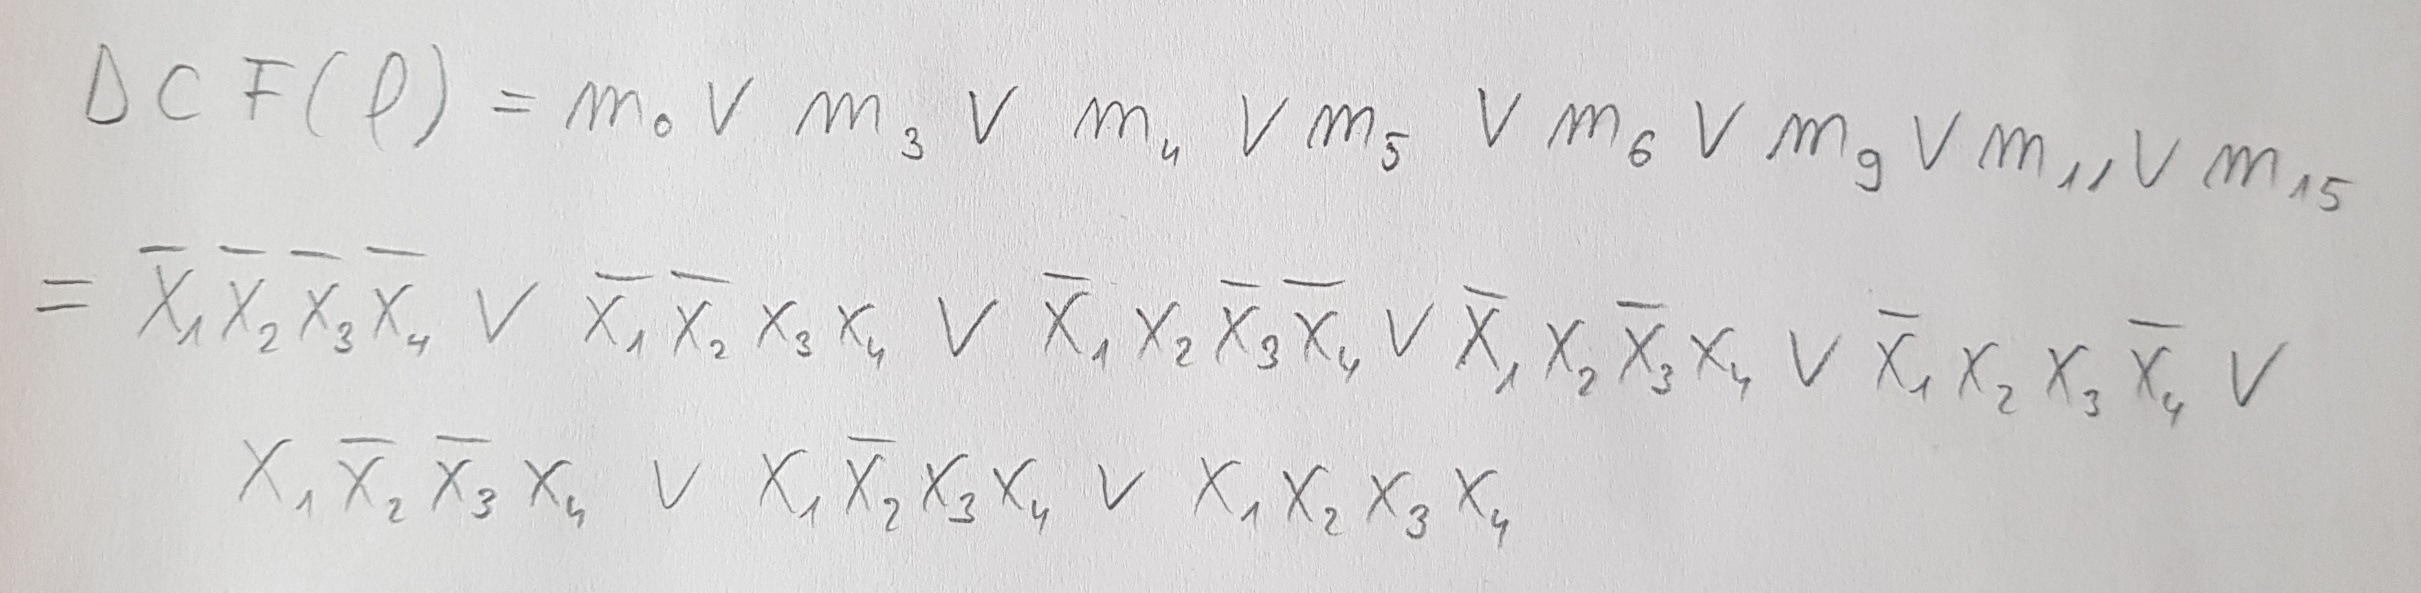 DCF(f) = m₀ ∨ m₃ ∨ m₄ ∨ m₅ ∨ m₆ ∨ m₉ ∨ m₁₁ ∨ m₁₅
= x̅₁ x̅₂ x̅₃ x̅₄ ∨ x̅₁ x̅₂ x₃ x₄ ∨ x̅₁ x₂ x̅₃ x̅₄ ∨ x̅₁ x₂ x̅₃ x₄ ∨ x̅₁ x₂ x₃ x̅₄ ∨
x₁ x̅₂ x̅₃ x₄ ∨ x₁ x̅₂ x₃ x₄ ∨ x₁ x₂ x₃ x₄